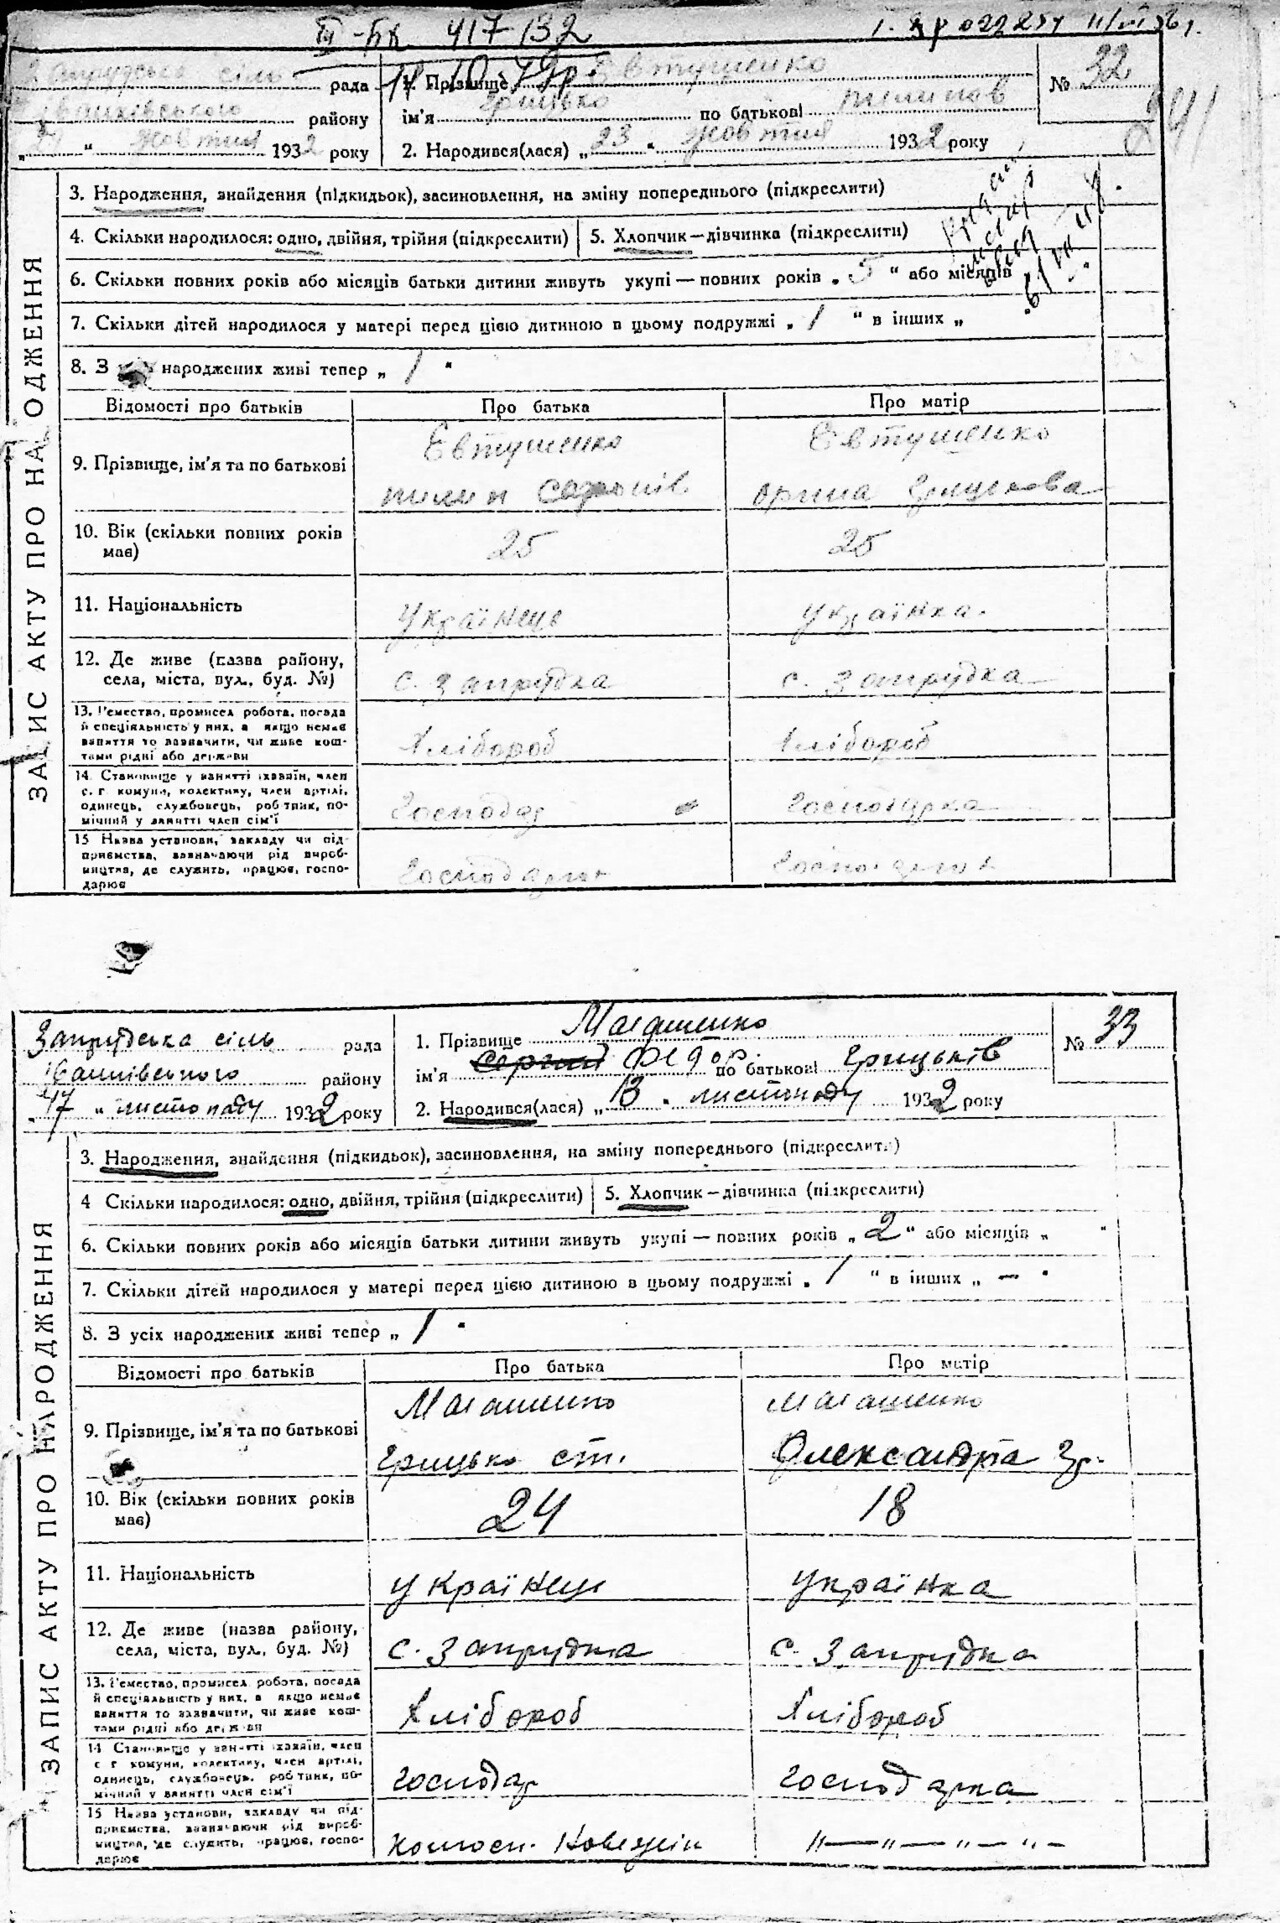 ІІІ-БК 417132
рада 1. Прізвище Євтушенко № 32
району ім'я Грицько по батькові Пилипов
„ “ жовтня 1932 року 2. Народився(лася) „23“ жовтня 1932 року
ЗАПИС АКТУ ПРО НАРОДЖЕННЯ
3. Народження, знайдення (підкидьок), засиновлення, на зміну попереднього (підкреслити)
4. Скільки народилося: одно, двійня, трійня (підкреслити) 5. Хлопчик—дівчинка (підкреслити)
6. Скільки повних років або місяців батьки дитини живуть укупі — повних років „5“ або місяців
7. Скільки дітей народилося у матері перед цією дитиною в цьому подружжі „1“ в інших „
8. З народжених живі тепер „1“
Відомості про батьків Про батька Про матір
9. Прізвище, ім'я та по батькові Євтушенко Євтушенко
Пилип Орина Грицькова
10. Вік (скільки повних років має) 25 25
11. Національність українець українка.
12. Де живе (назва району, села, міста, вул., буд. №) с. Запрудка с. Запрудка
13. Ремество, промисел робота, посада й спеціяльність у них, а якщо немає заняття то зазначити, чи живе коштами рідні або держави Хлібороб Хлібороб
14. Становище у занятті (хазяїн, член с. г. комуни, колективу, член артілі, одинець, службовець, робітник, помічний у занятті член сім'ї Господар Господарка
15 Назва установи, закладу чи підприємства, зазначаючи рід виробництва, де служить, працює, господарює
Запрудська сіль рада 1. Прізвище № 33
району ім'я Сергій Федор. по батькові Грицьків
„17“ листопаду 1932 року 2. Народився(лася) „13“ листопаду 1932 року
ЗАПИС АКТУ ПРО НАРОДЖЕННЯ
3. Народження, знайдення (підкидьок), засиновлення, на зміну попереднього (підкреслити)
4 Скільки народилося: одно, двійня, трійня (підкреслити) 5. Хлопчик—дівчинка (підкреслити)
6. Скільки повних років або місяців батьки дитини живуть укупі — повних років „2“ або місяців „ “
7. Скільки дітей народилося у матері перед цією дитиною в цьому подружжі „1“ в інших „—“
8. З усіх народжених живі тепер „1“
Відомості про батьків Про батька Про матір
9. Прізвище, ім'я та по батькові
Грицько ст. Олександра Гр.
10. Вік (скільки повних років має) 24 18
11. Національність українець українка
12. Де живе (назва району, села, міста, вул., буд. №) с. Запрудка с. Запрудка
13. Ремество, промисел робота, посада й спеціяльність у них, а якщо немає заняття то зазначити, чи живе коштами рідні або держави Хлібороб Хлібороб
14 Становище у занятті (хазяїн, член с. г. комуни, колективу, член артілі, одинець, службовець, робітник, помічний у занятті член сім'ї Господар Господарка
15 Назва установи, закладу чи підприємства, зазначаючи рід виробництва, де служить, працює, господарює „—„—„—„—